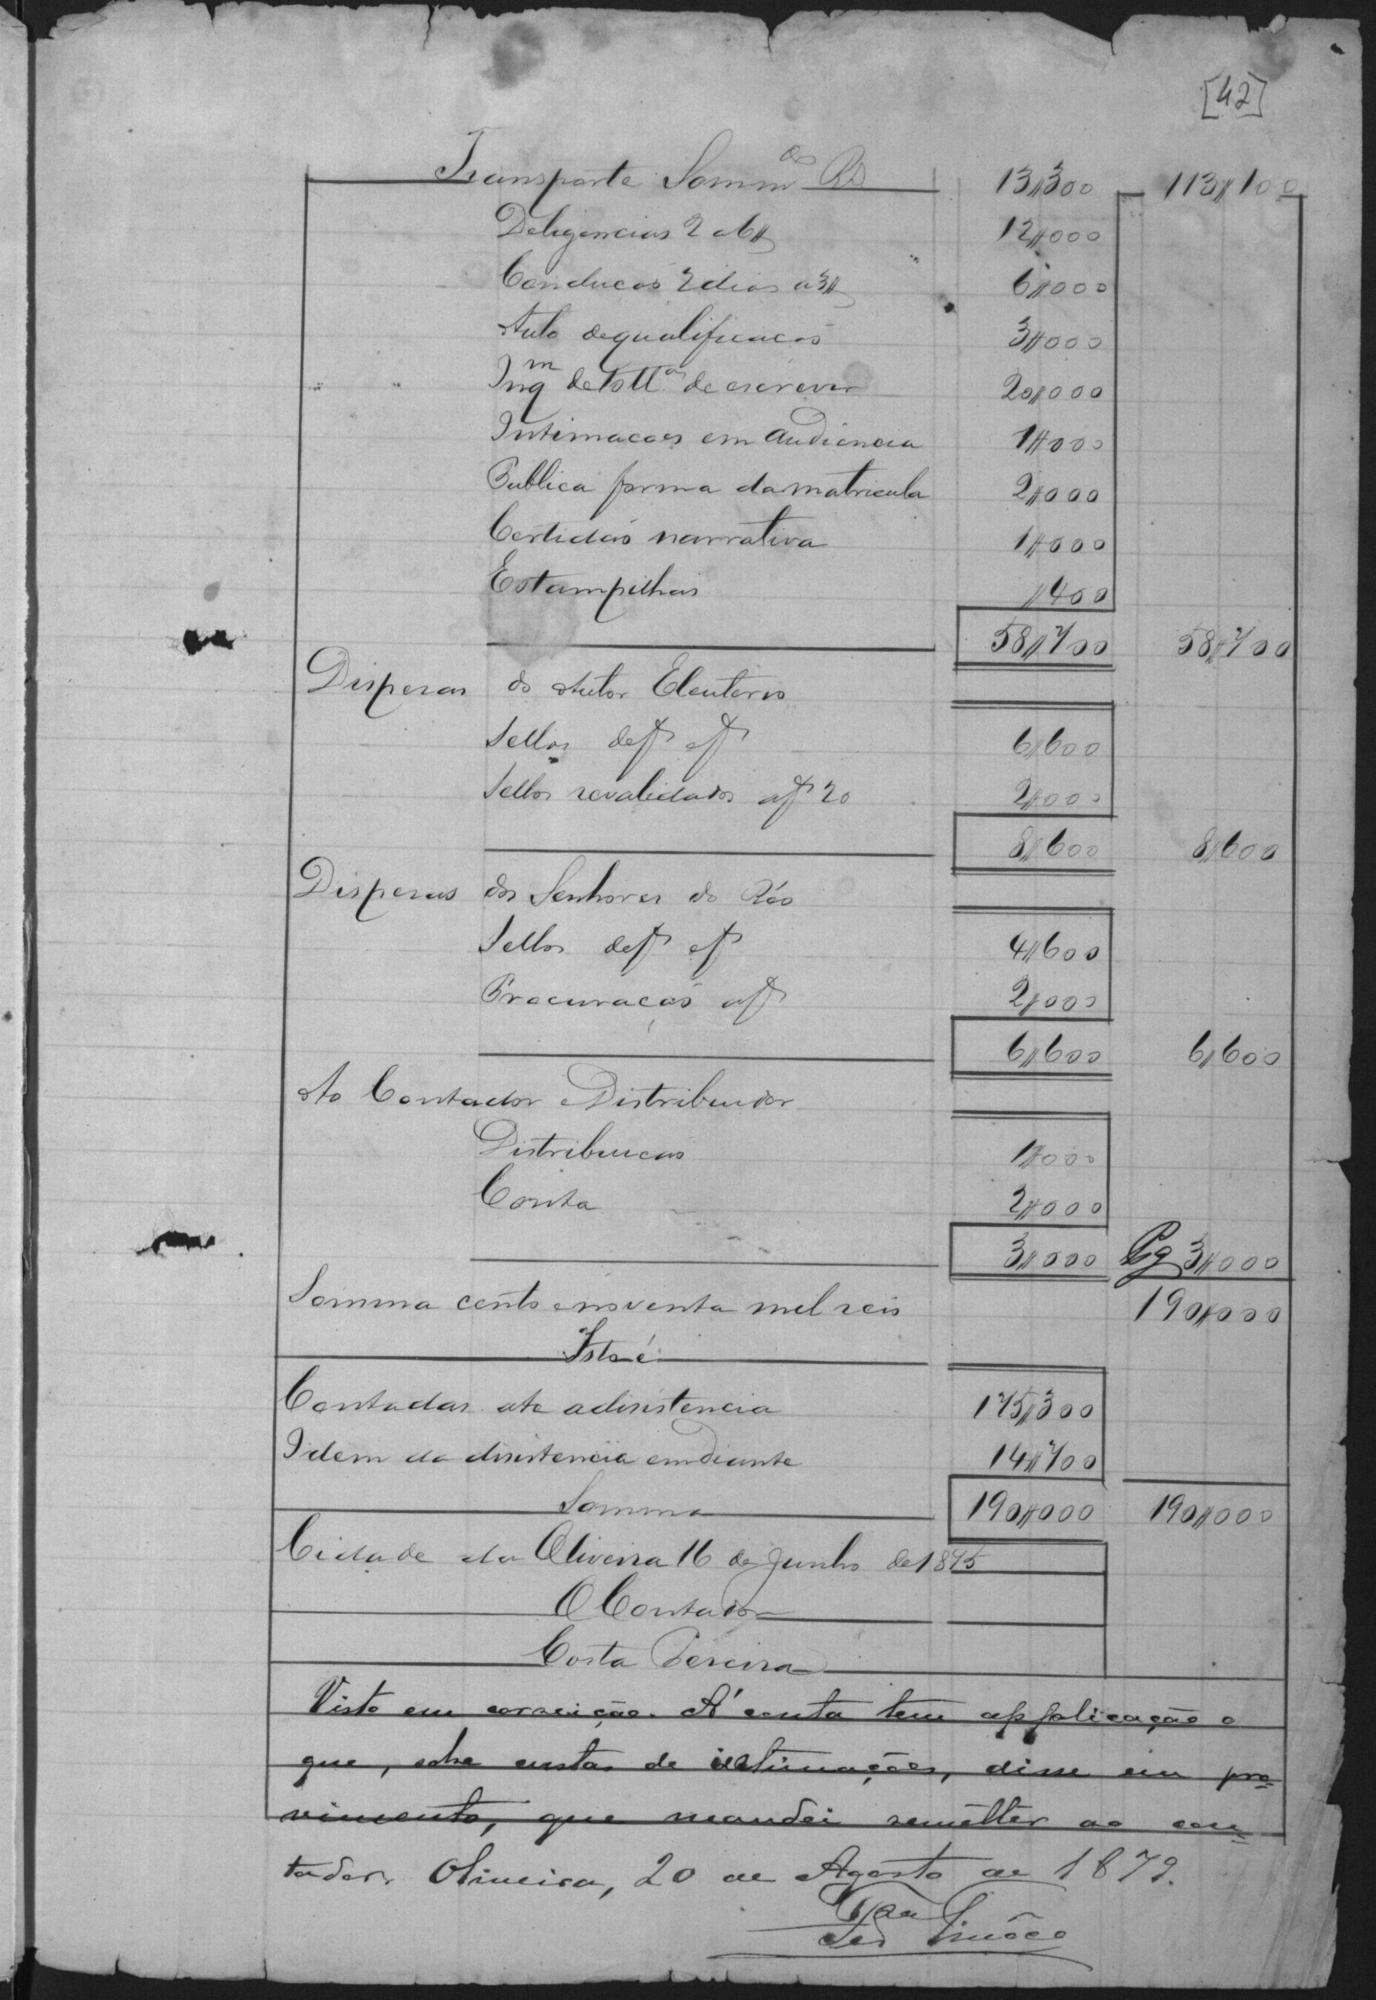 [42]
Transporte Somm^as Rs 13,,300 113,,100
Deligencias 2 a 6,, 12,,000
Conducaõ 2 dias a 3,, 6,,000
Auto dequalificacaõ 3,,000
Inq^m de de escrever 20,,000
Intimacaoes em audiencia 1,,000
Publica forma damatricula 2,,000
Certidaõ narrativa 1,,000
Estampilhas ,,400
58,,700 58,,700
Dispesas do Autor Eleuterio
Sellos def f 6,,600
Sellos revalidados af 20 2,,000
8,,600 8,,600
Dispesas dos Senhores do Réo
Sellos def f 4,,600
Procuração af 2,,000
6,,600 6,,600
Ao Contador e Distribuidor
Distribuicaõ 1,,000
Conta 2,,000
3,,000 Pg 3,,000
Somma cento enoventa mil reis 190,,000
Isto é
Contadas ate adisistencia 175,,300
Idem da disistencia emdiante 14,,700
Somma 190,,000 190,,000
Cidade da Oliveira 16 de Junho de 1875
O Contador
Costa Pereira
Visto em correição. A' conta tem applicação o
que, sobre custas de intimações, disse em pro=
vimento, que mandei remetter ao con=
tador. Oliveira, 20 de Agosto de 1879.
Tinôco